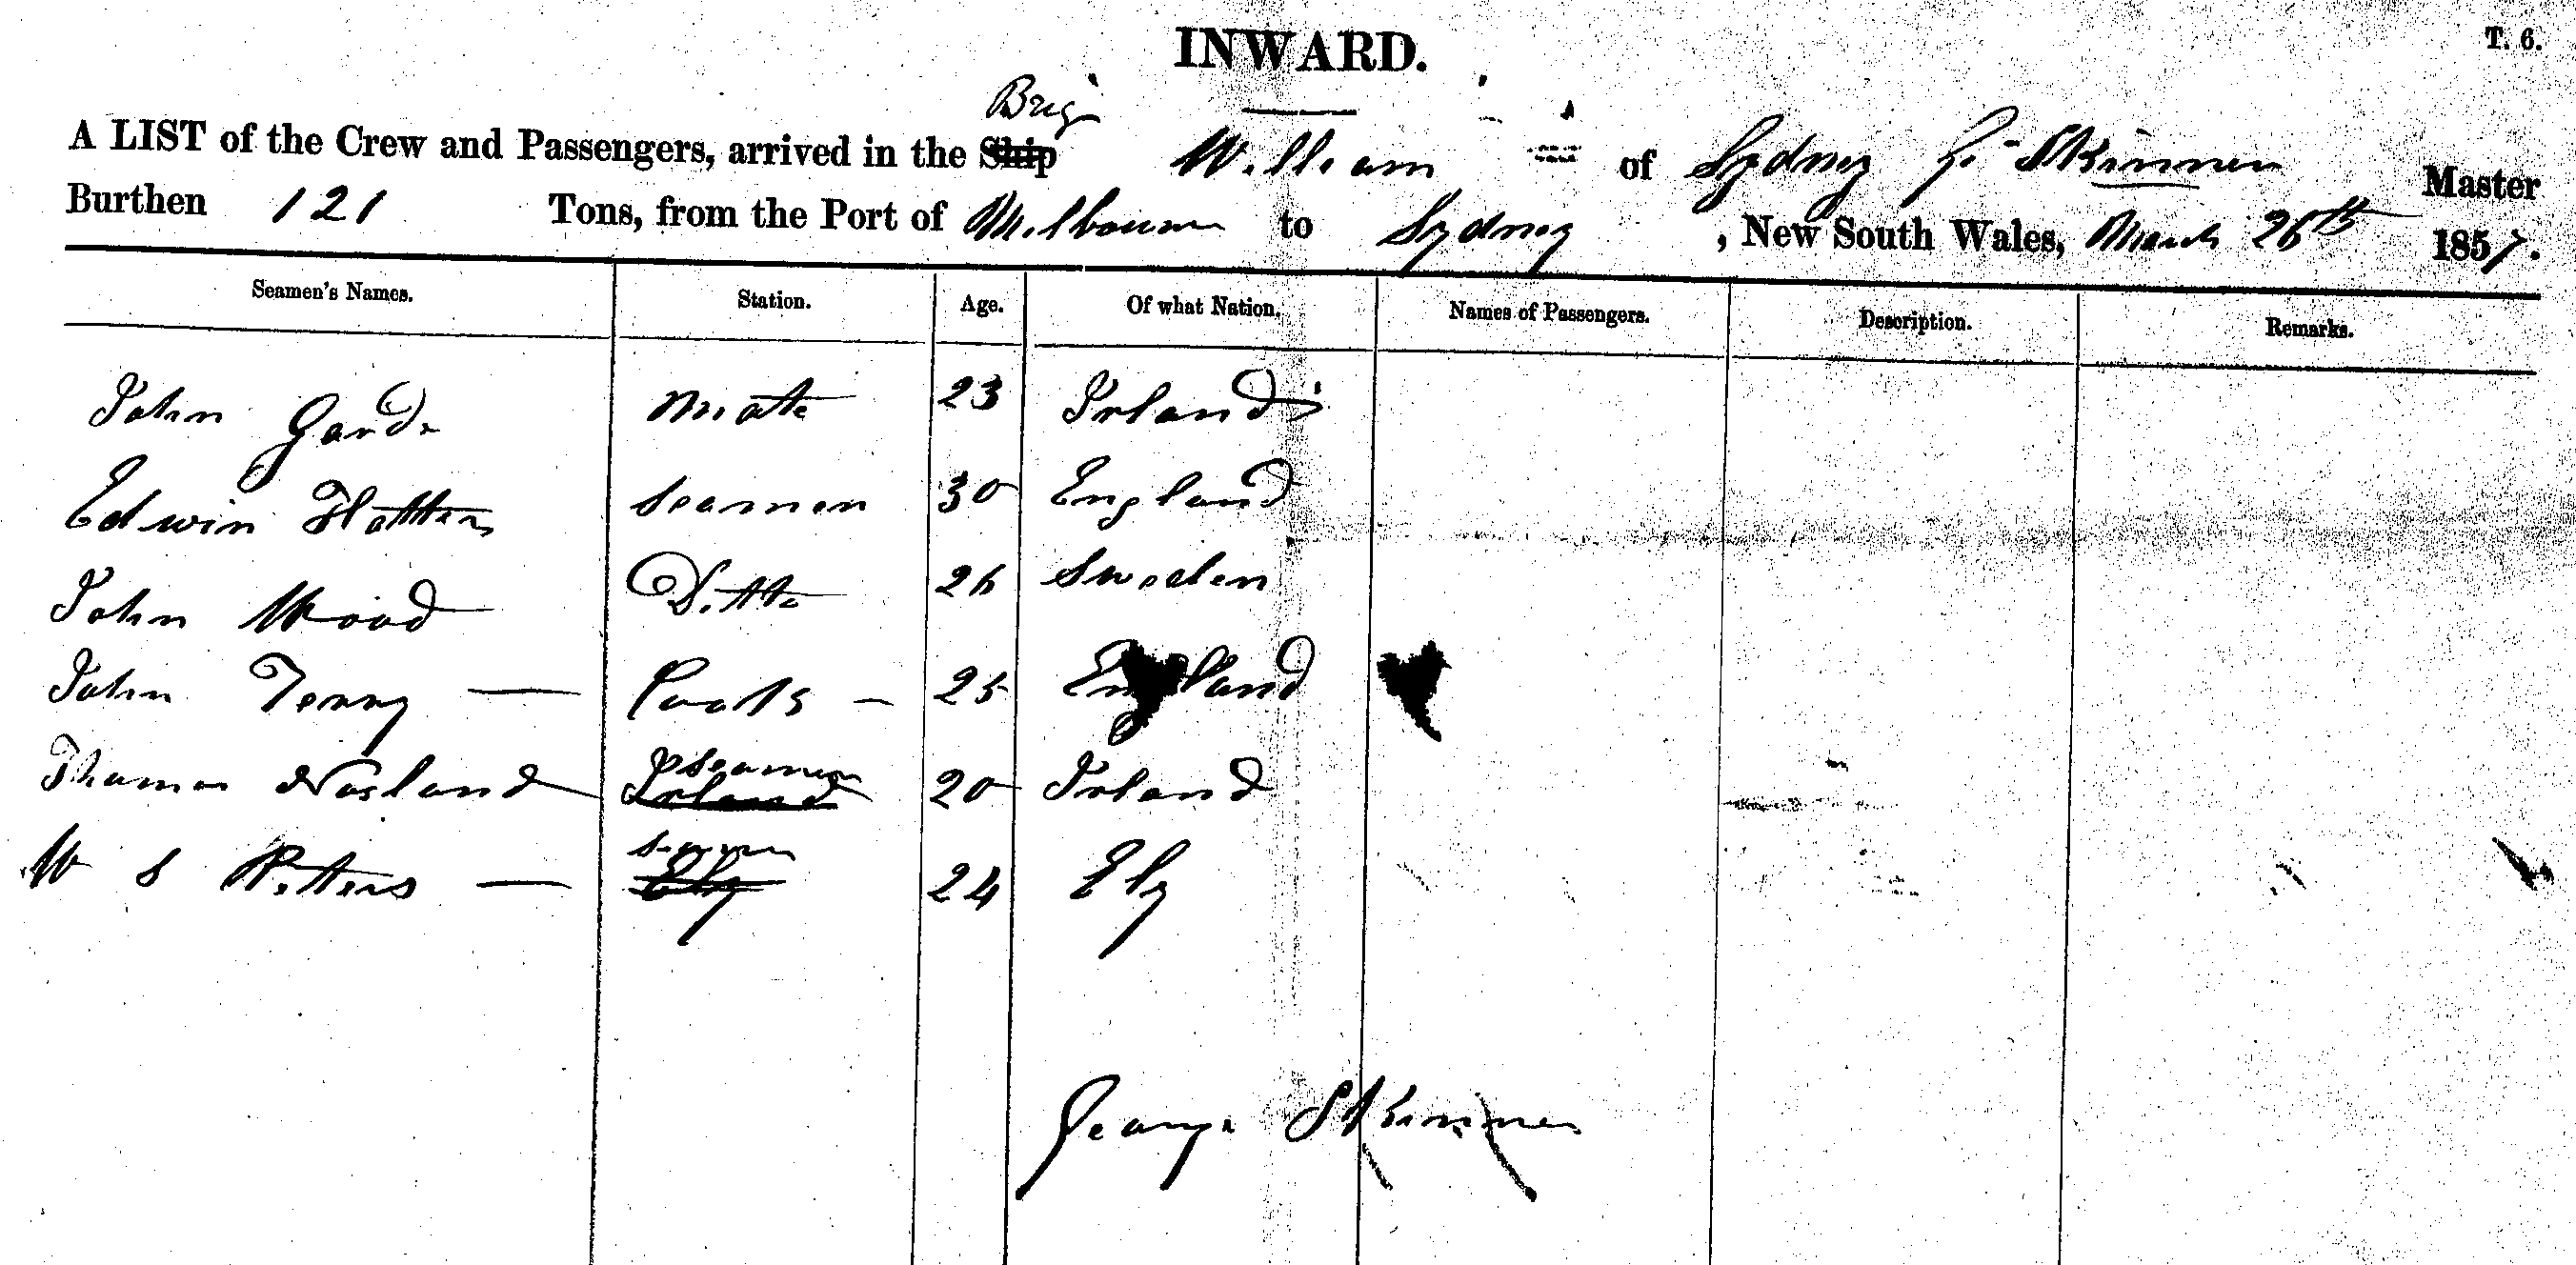 INWARD.
T. 6.
Brig
A LIST of the Crew and Passengers, arrived in the Ship William of Sydney G. Skinner Master
Burthen 121 Tons, from the Port of Melbourne to Sydney, New South Wales, March 26th 1857.
Seamen's Names. Station. Age. Of what Nation. Names of Passengers. Description. Remarks.
John Mate 23 Irland
Edwin Seamen 30 England
John Wood Ditto 26 Sweden
John Terry 25 England
Seamen
Thomas Irland 20 Irland
W S Petters Ely 24 Ely
George Skinner